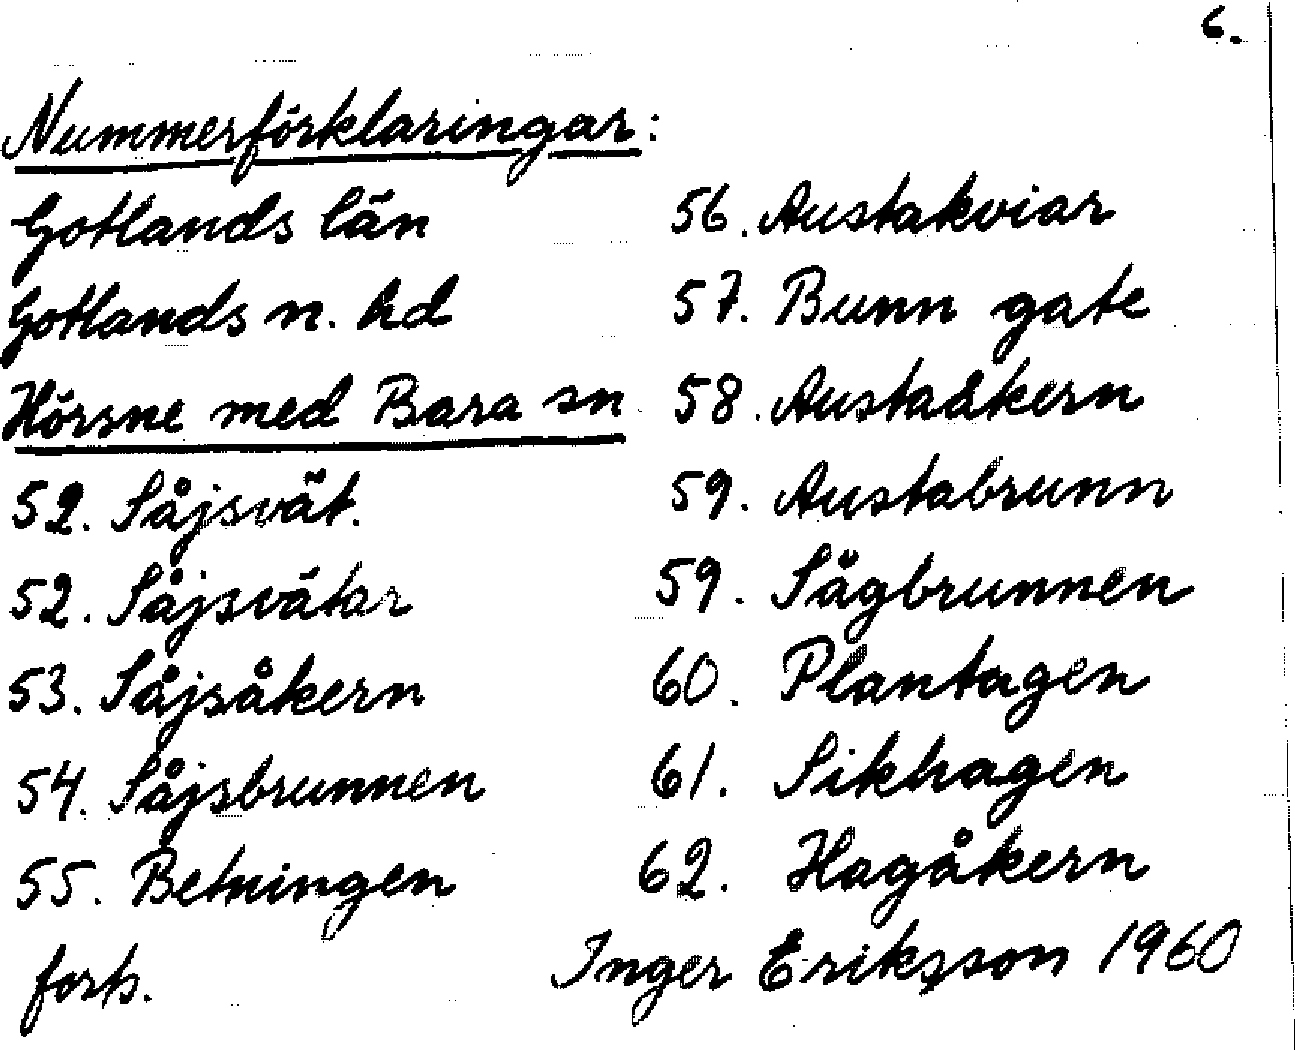 6.
Nummerförklaringar:
Gotlands län
Gotlands n. hd
Hörsne med Bara sn
52. Såjsvät.
52. Såjsvätar
53. Såjsåkern
54. Såjsbrunnen
55. Betningen
forts.
56. Austakviar
57. Bunn gate
58. Austaåkern
59. Austabrunn
59. Sågbrunnen
60. Plantagen
61. Sikhagen
62. Hagåkern
Inger Eriksson 1960